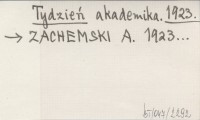 Tydzień akademika. 1923.
→ ZACHEMSKI A. 1923...